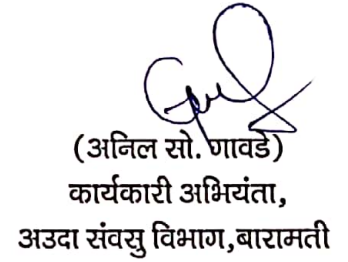 (अनिल सो. गावडे)
कार्यकारी अभियंता,
अउदा संवसु विभाग,बारामती